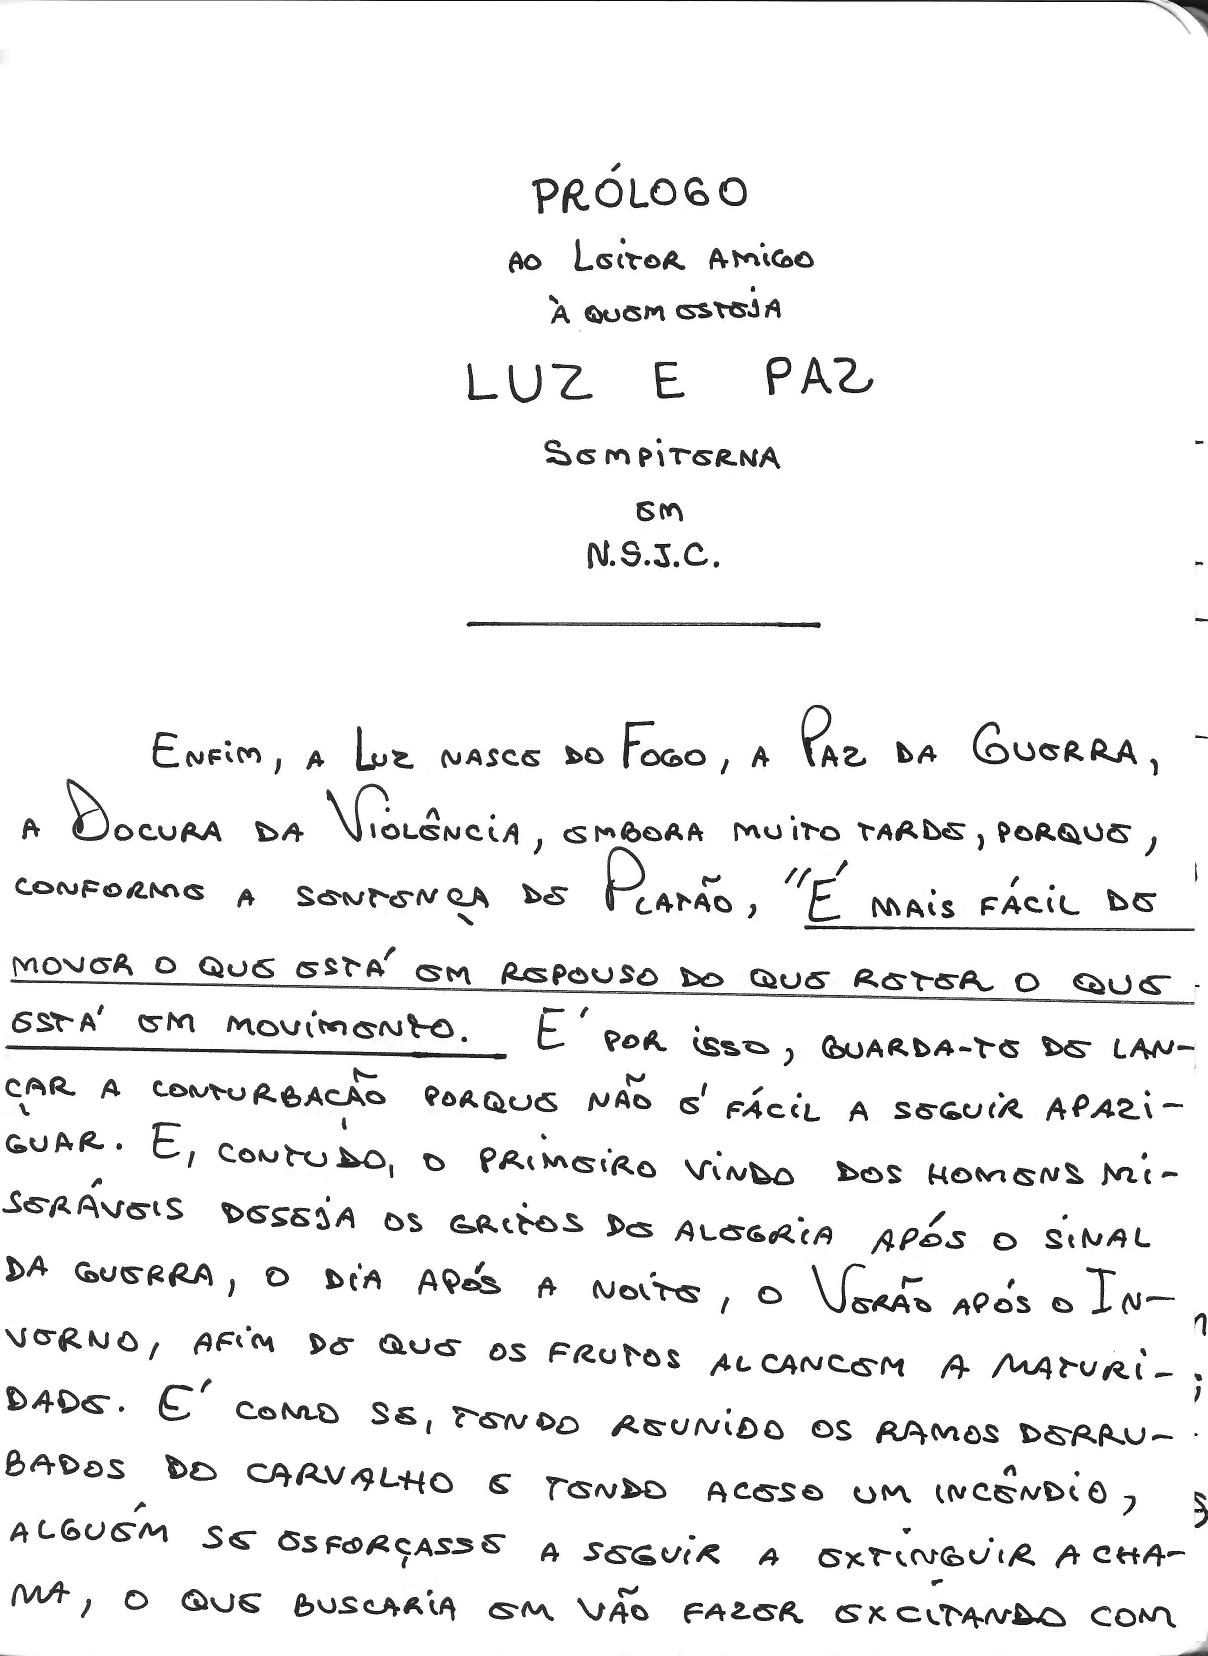 PRÓLOGO
AO LEITOR AMIGO
À QUEM ESTEJA
LUZ E PAZ
SEMPITERNA
EM
N.S.J.C.
ENFIM, A LUZ NASCE DO FOGO, A PAZ DA GUERRA,
A DOCURA DA VIOLÊNCIA, EMBORA MUITO TARDE, PORQUE,
CONFORME A SENTENÇA DE PLATÃO, "É MAIS FÁCIL DE
MOVER O QUE ESTÁ EM REPOUSO DO QUE RETER O QUE
ESTÁ EM MOVIMENTO. É POR ISSO, GUARDA-TE DE LAN-
ÇAR A CONTURBAÇÃO PORQUE NÃO É FÁCIL A SEGUIR APAZI-
GUAR. E, CONTUDO, O PRIMEIRO VINDO DOS HOMENS MI-
SERÁVEIS DESEJA OS GRITOS DE ALEGRIA APÓS O SINAL
DA GUERRA, O DIA APÓS A NOITE, O VERÃO APÓS O IN-
VERNO, AFIM DE QUE OS FRUTOS ALCANCEM A MATURI-
DADE. É COMO SE, TENDO REUNIDO OS RAMOS DERRU-
BADOS DO CARVALHO E TENDO ACESO UM INCÊNDIO,
ALGUÉM SE ESFORÇASSE A SEGUIR A EXTINGUIR A CHA-
MA, O QUE BUSCARIA EM VÃO FAZER EXCITANDO COM